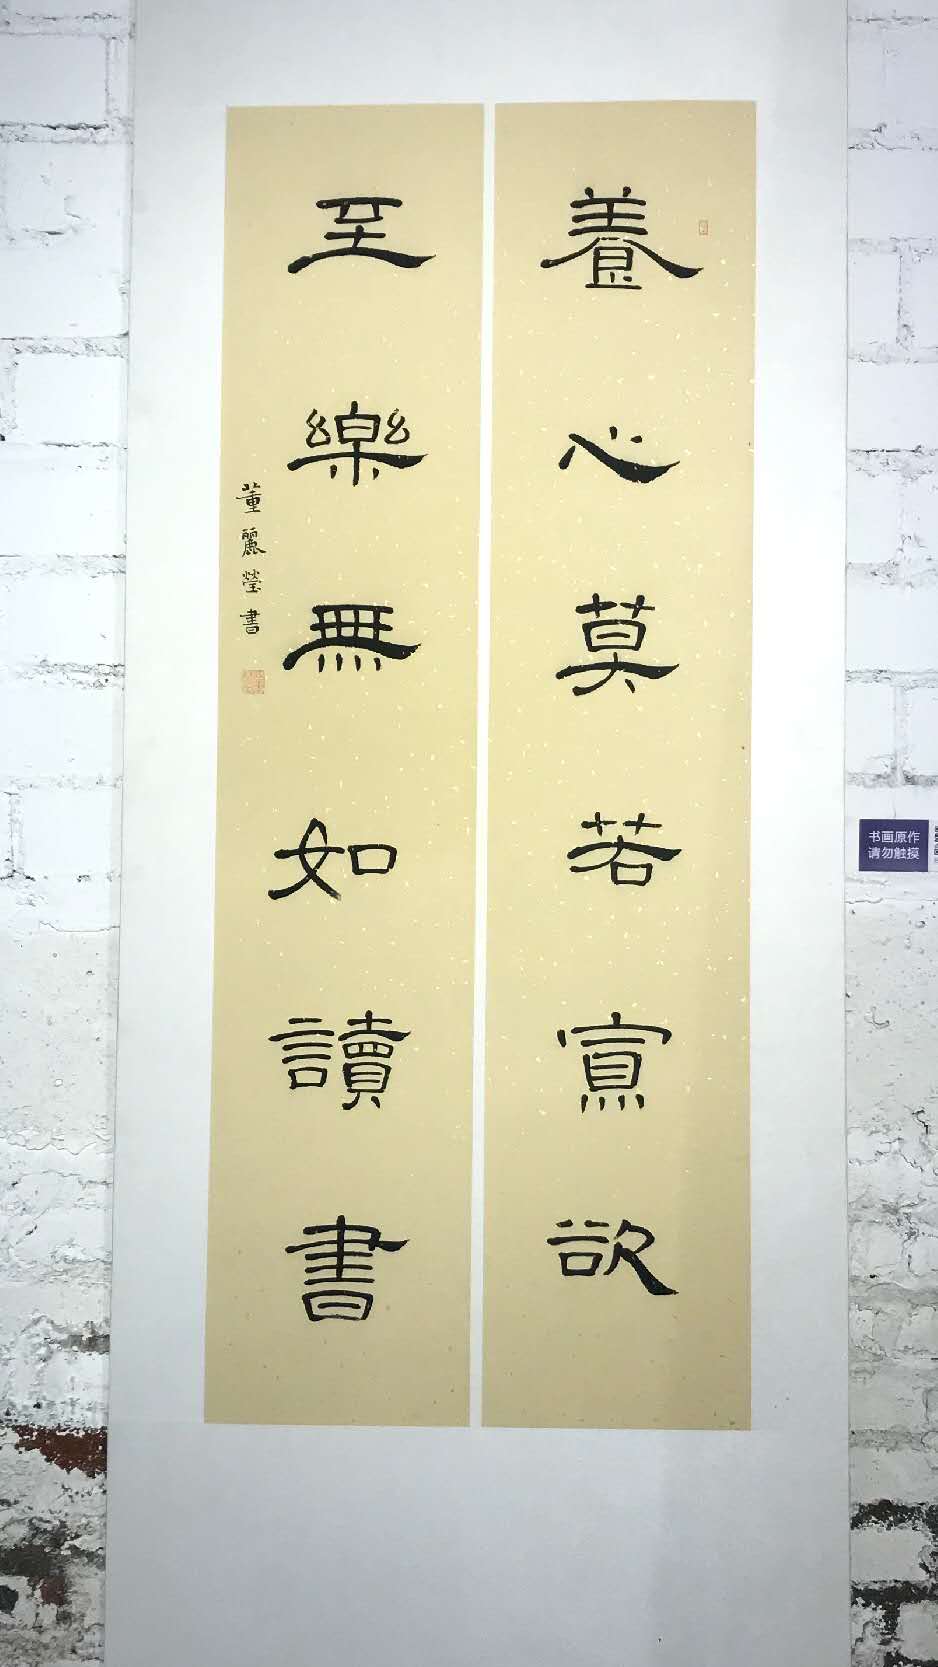 養心莫若寡欲
至樂無如讀書
董麗瑩書
书画原作
请勿触摸